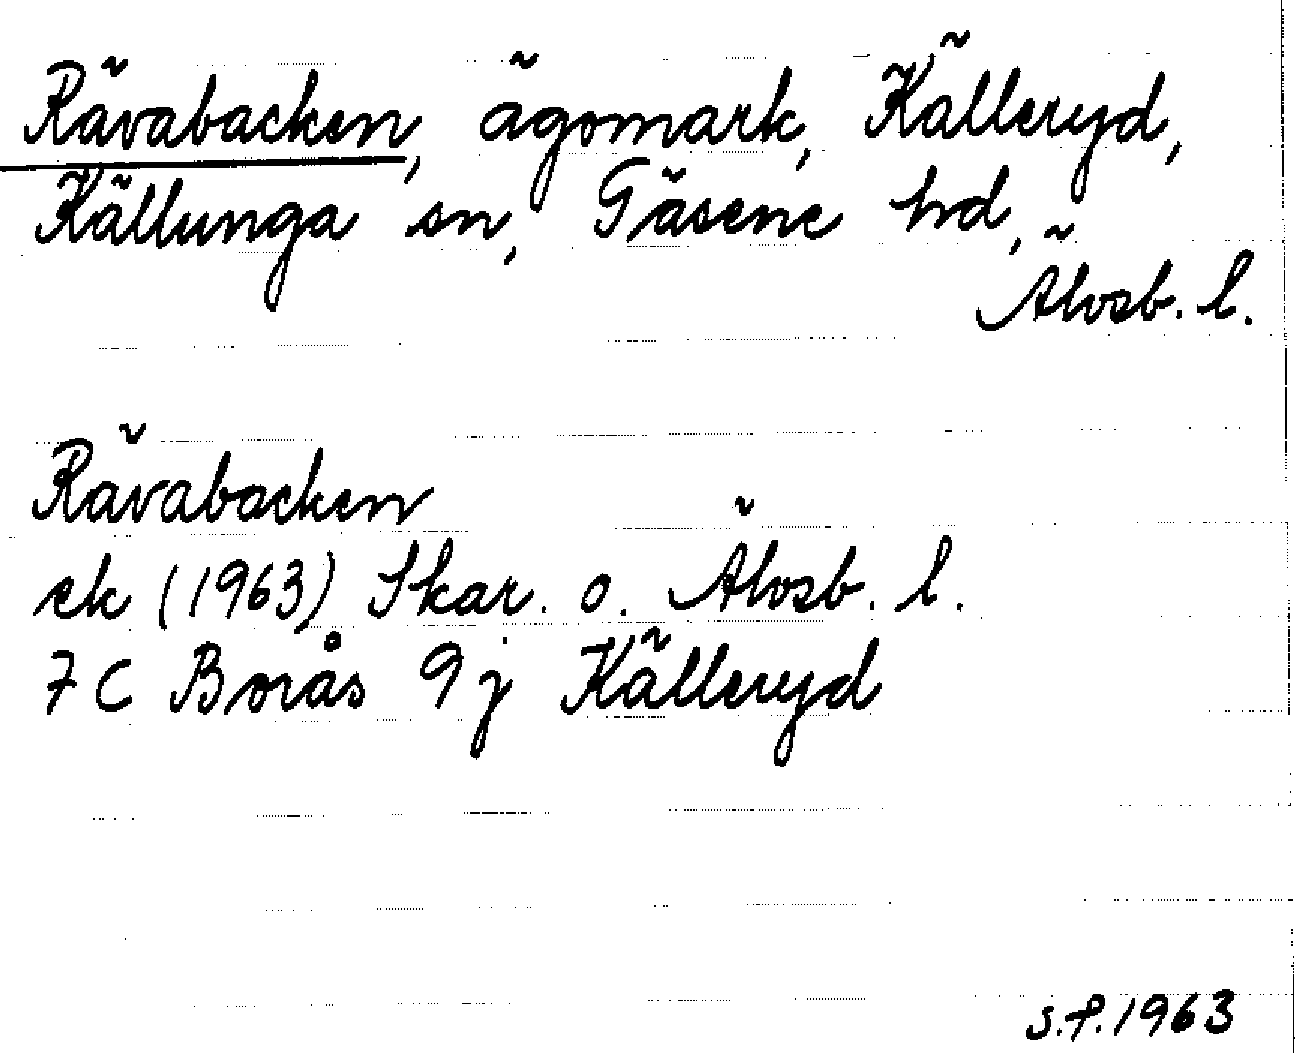 Rävabacken, ägomark, Källeryd,
Källunga sn, Gäsene hd,
Älvsb. l.
Rävabacken
ek (1963) Skar. o. Älvsb. l.
7C Borås 9j Källeryd
s.f. 1963